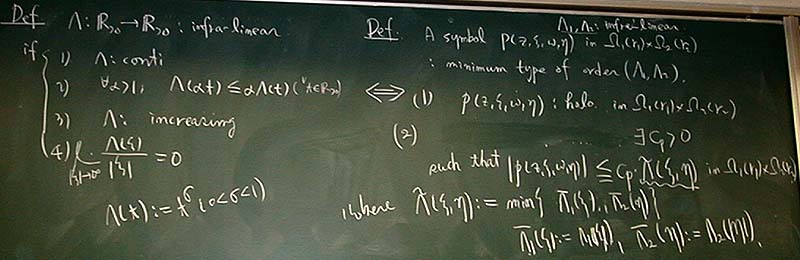 Def Λ: ℝ>0 → ℝ>0 : infra-linear
if
1) Λ: conti
2) ∀α>1, Λ(αt) ≦ αΛ(t) (∀t∈ℝ>0)
3) Λ: increasing
4) Λ(ξ)/|ξ| = 0
|ξ|→∞
Λ(t) := t^σ (0<σ<1)
Λ₁, Λ₂: infra-linear
Def. A symbol p(z,ξ,w,η) in Ω₁(r₁)×Ω₂(r₂)
: minimum type of order (Λ₁,Λ₂).
⟺ (1) p(z,ξ,w,η): holo in Ω₁(r₁)×Ω₂(r₂)
(2) ∃Cp>0
such that |p(z,ξ,w,η)| ≦ Cp·Λ̃(ξ,η) in Ω₁(r₁)×Ω₂(r₂)
where Λ̃(ξ,η) := min{ Λ̃₁(ξ), Λ̃₂(η)}
Λ̃₁(ξ) := Λ₁(|ξ|), Λ̃₂(η) := Λ₂(|η|).